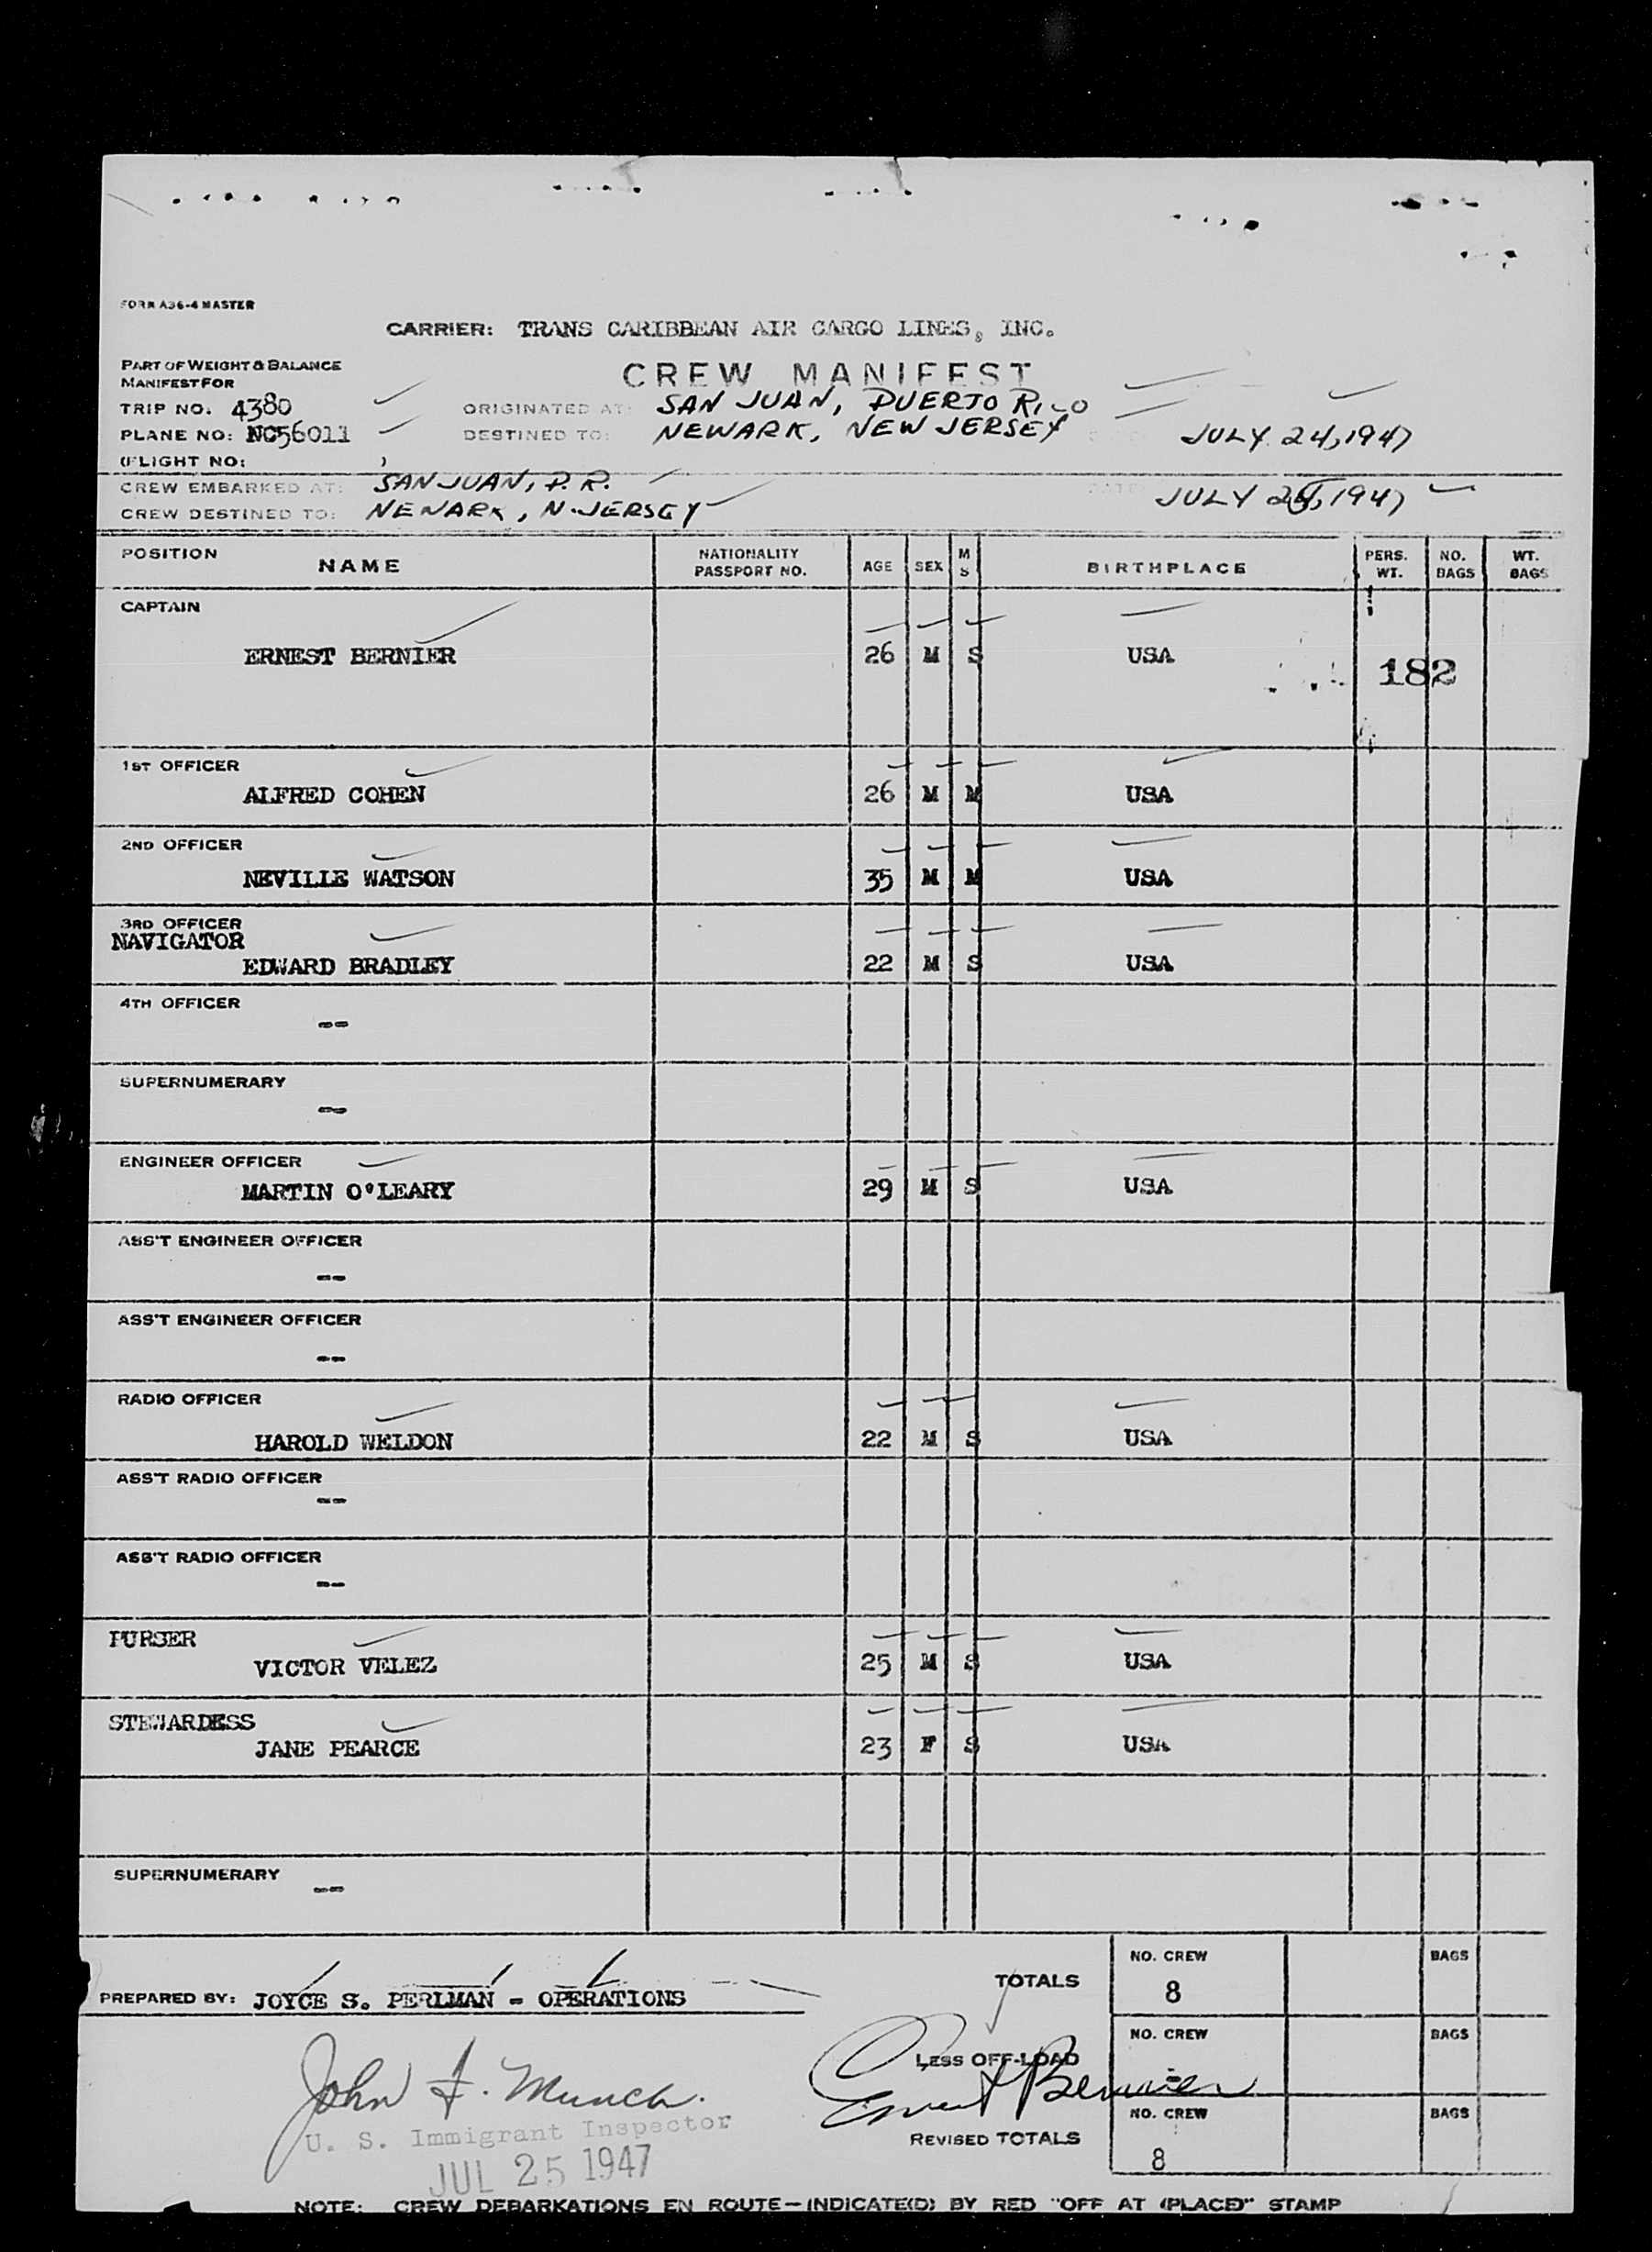 FORM A36-4 MASTER
CARRIER: TRANS CARIBBEAN AIR CARGO LINES, INC.
PART OF WEIGHT & BALANCE
MANIFEST FOR
CREW MANIFEST
TRIP NO. 4380
ORIGINATED AT: SAN JUAN, PUERTO RICO
PLANE NO: NC56011
DESTINED TO: NEWARK, NEW JERSEY JULY 24, 1947
(FLIGHT NO: )
CREW EMBARKED AT: SAN JUAN, P.R. DATE JULY 24, 1947
CREW DESTINED TO: NEWARK, N. JERSEY
POSITION NAME NATIONALITY PASSPORT NO. AGE SEX M S BIRTHPLACE PERS. WT. NO. BAGS WT. BAGS
CAPTAIN
ERNEST BERNIER 26 M S USA 182
1ST OFFICER
ALFRED COHEN 26 M M USA
2ND OFFICER
NEVILLE WATSON 35 M M USA
3RD OFFICER
NAVIGATOR
EDWARD BRADLEY 22 M S USA
4TH OFFICER
--
SUPERNUMERARY
--
ENGINEER OFFICER
MARTIN O'LEARY 29 M S USA
ASS'T ENGINEER OFFICER
--
ASS'T ENGINEER OFFICER
--
RADIO OFFICER
HAROLD WELDON 22 M S USA
ASS'T RADIO OFFICER
--
ASS'T RADIO OFFICER
--
PURSER
VICTOR VELEZ 25 M S USA
STEWARDESS
JANE PEARCE 23 F S USA
SUPERNUMERARY
--
NO. CREW BAGS
TOTALS 8
PREPARED BY: JOYCE S. PERLMAN - OPERATIONS
NO. CREW BAGS
LESS OFF-LOAD -
John F. Munch.
Ernest Bernier
U. S. Immigrant Inspector
NO. CREW BAGS
REVISED TOTALS 8
JUL 25 1947
NOTE: CREW DEBARKATIONS EN ROUTE—INDICATE(D) BY RED "OFF AT (PLACE)" STAMP